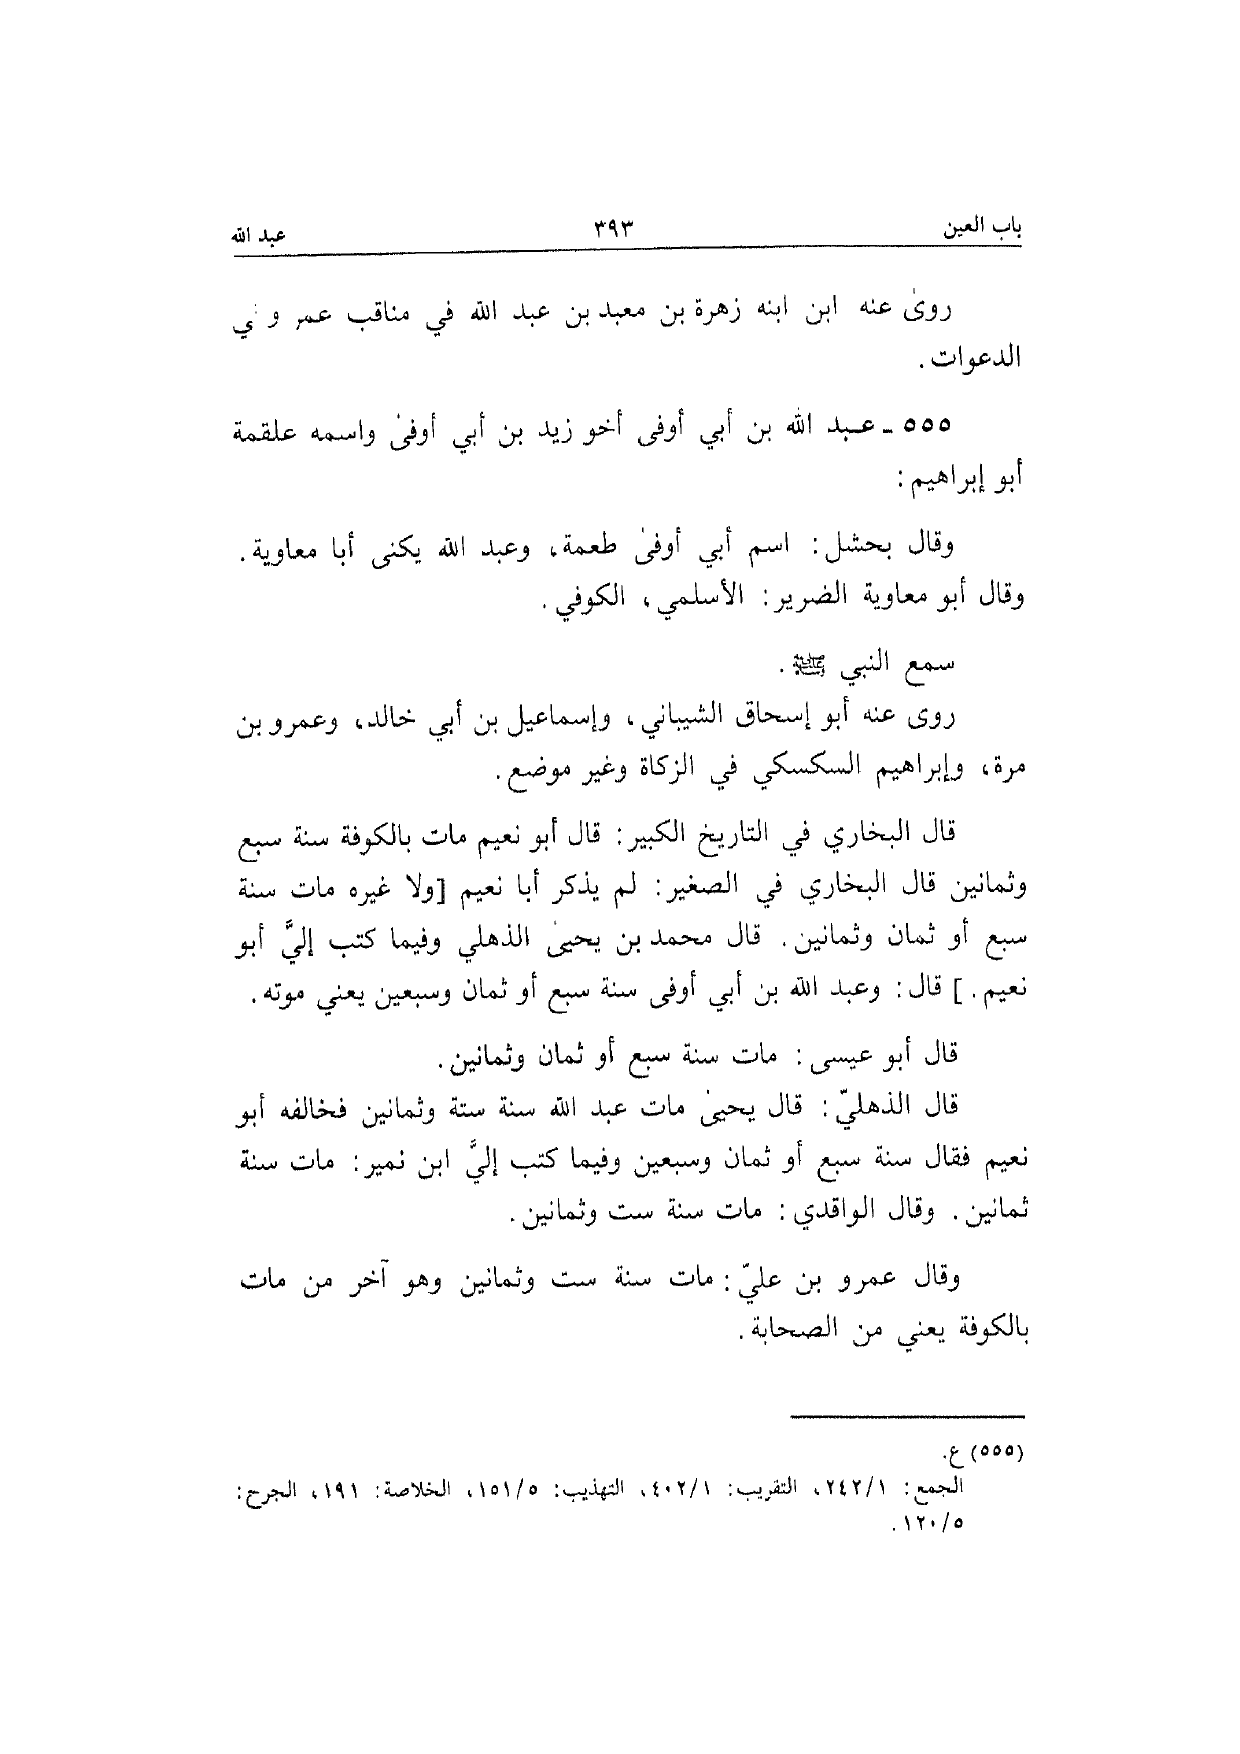 باب العين ٣٩٣ عبد الله
روىٰ عنه ابن ابنه زهرة بن معبد بن عبد الله في مناقب عمر و
الدعوات.
٥٥٥ ـ عبد الله بن أبي أوفى أخو زيد بن أبي أوفىٰ واسمه علقمة
أبو إبراهيم:
وقال بحشل: اسم أبي أوفىٰ طعمة، وعبد الله يكنى أبا معاوية.
وقال أبو معاوية الضرير: الأسلمي، الكوفي.
سمع النبي ﷺ.
روى عنه أبو إسحاق الشيباني، وإسماعيل بن أبي خالد، وعمرو بن
مرة، وإبراهيم السكسكي في الزكاة وغير موضع.
قال البخاري في التاريخ الكبير: قال أبو نعيم مات بالكوفة سنة سبع
وثمانين قال البخاري في الصغير: لم يذكر أبا نعيم [ولا غيره مات سنة
سبع أو ثمان وثمانين. قال محمد بن يحيىٰ الذهلي وفيما كتب إليَّ أبو
نعيم.] قال: وعبد الله بن أبي أوفى سنة سبع أو ثمان وسبعين يعني موته.
قال أبو عيسى: مات سنة سبع أو ثمان وثمانين.
قال الذهليّ: قال يحيىٰ مات عبد الله سنة ستة وثمانين فخالفه أبو
نعيم فقال سنة سبع أو ثمان وسبعين وفيما كتب إليَّ ابن نمير: مات سنة
ثمانين. وقال الواقدي: مات سنة ست وثمانين.
وقال عمرو بن عليّ: مات سنة ست وثمانين وهو آخر من مات
بالكوفة يعني من الصحابة.
(٥٥٥) ع.
الجمع: ٢٤٢/١، التقريب: ٤٠٢/١، التهذيب: ١٥١/٥، الخلاصة: ١٩١، الجرح:
١٢٠/٥.